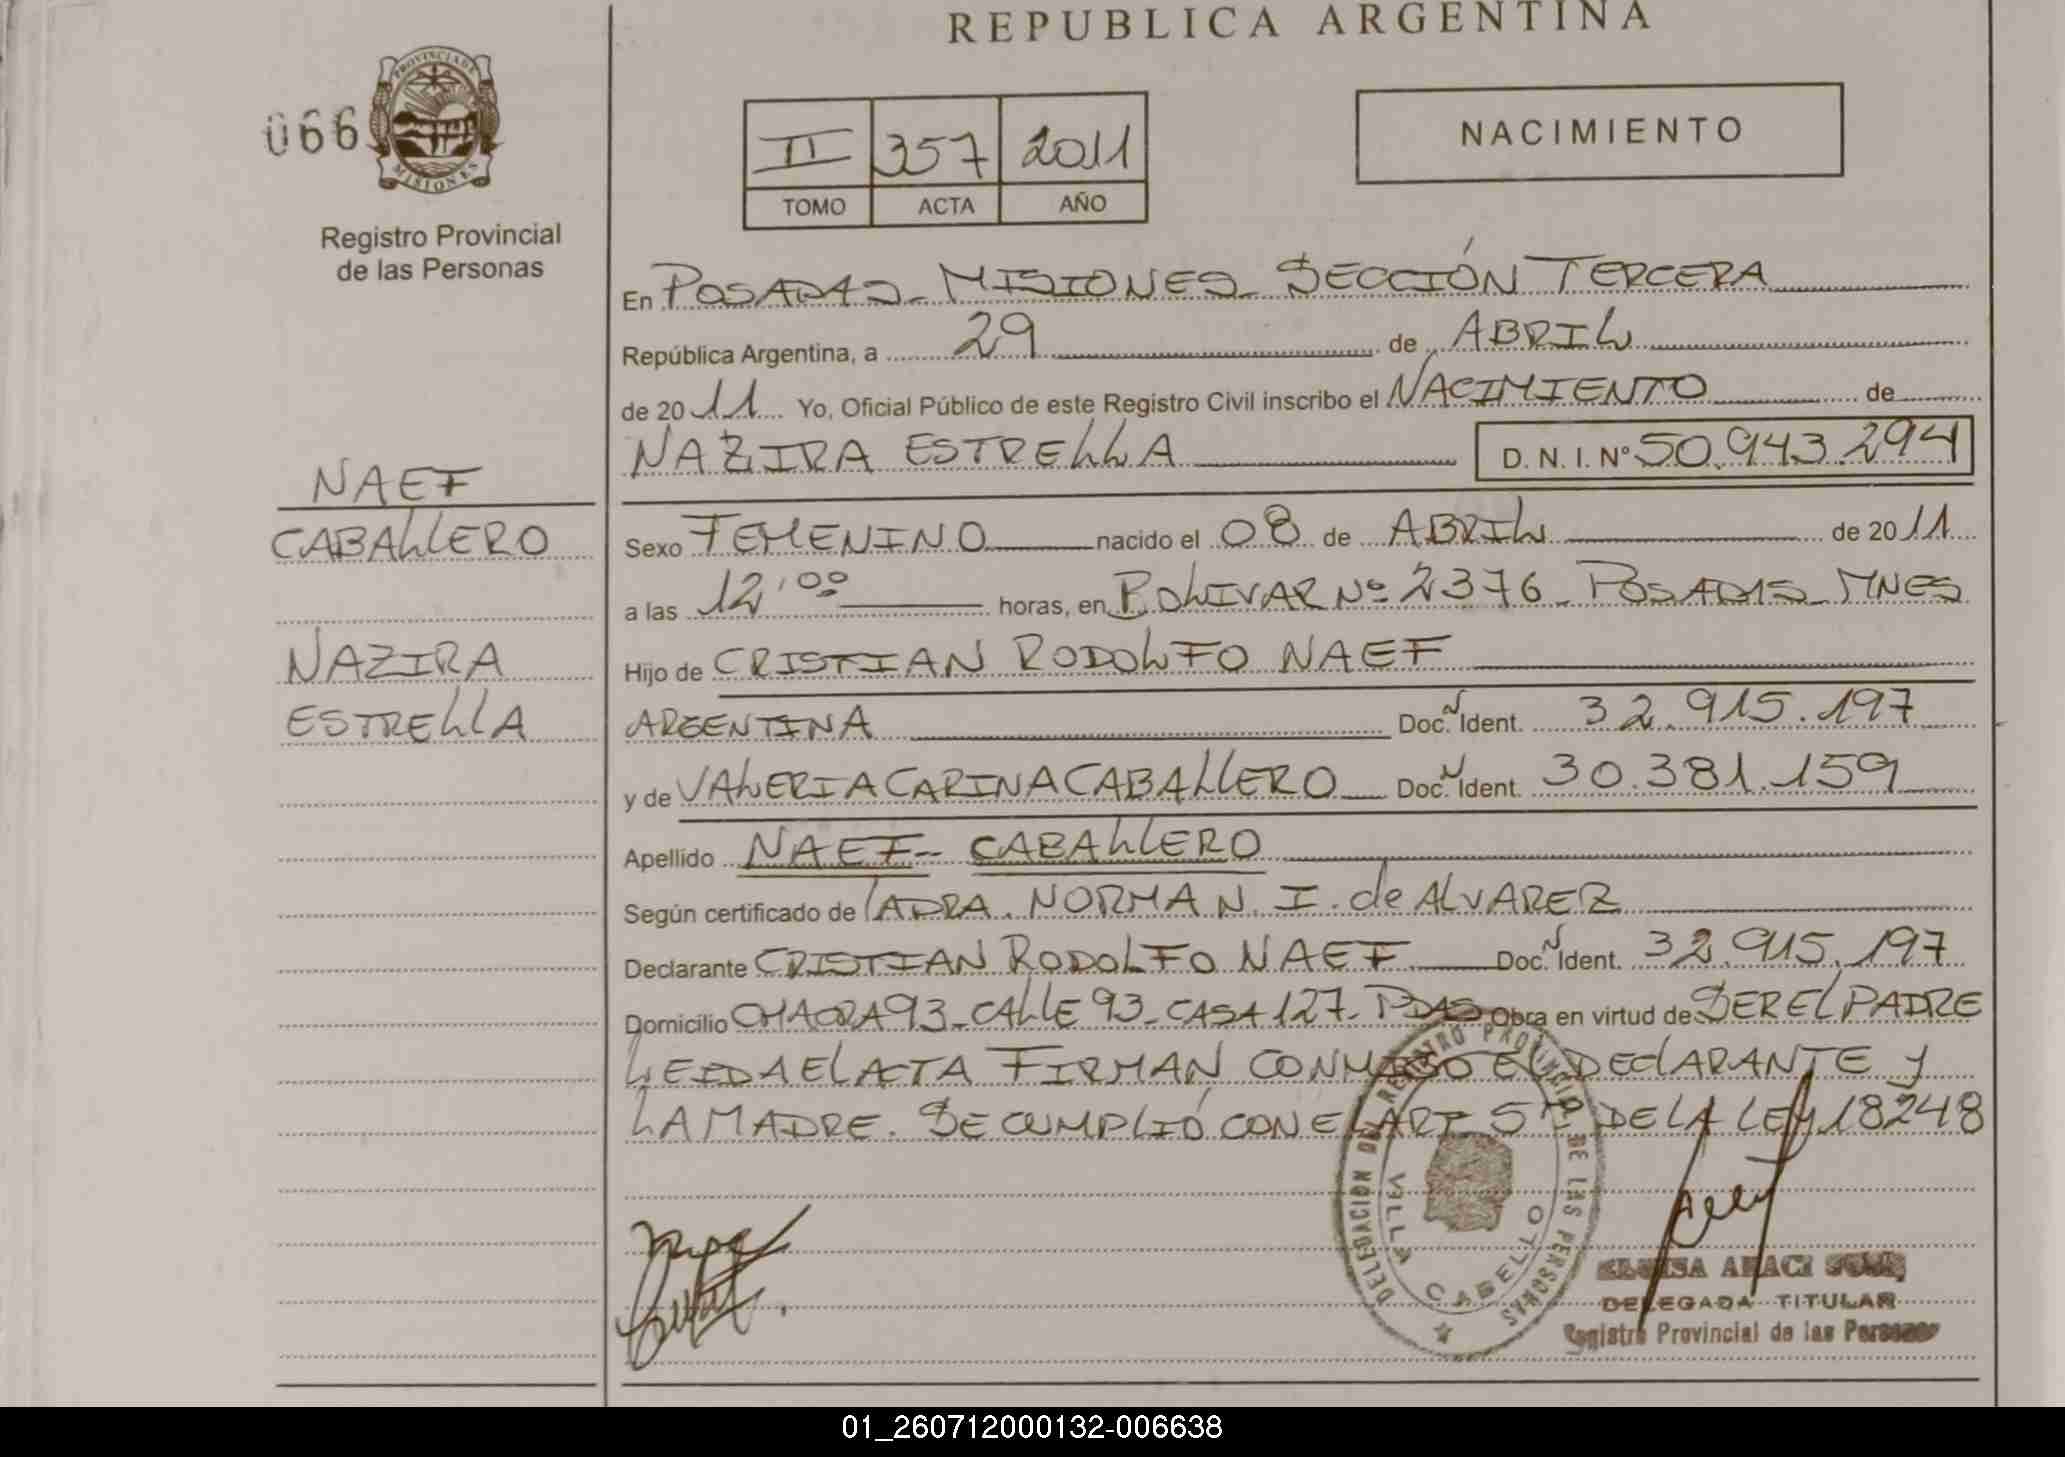 REPUBLICA ARGENTINA
066
PROVINCIA DE MISIONES
Registro Provincial
de las Personas
II 357 2011
TOMO ACTA AÑO
NACIMIENTO
En POSADAS - MISIONES - SECCIÓN TERCERA
República Argentina, a 29 de ABRIL
de 2011 Yo, Oficial Público de este Registro Civil inscribo el NACIMIENTO de
NAZIRA ESTRELLA D. N. I. N° 50.943.294
NAEF
CABALLERO
NAZIRA
ESTRELLA
Sexo FEMENINO nacido el 08 de ABRIL de 2011
a las 12'00 horas, en BOLIVAR Nº 2376 - POSADAS - MNES
Hijo de CRISTIAN RODOLFO NAEF
ARGENTINA Doc. N Ident. 32.915.197
y de VALERIA CARINA CABALLERO Doc. N Ident. 30.381.159
Apellido NAEF - CABALLERO
Según certificado de LA DRA. NORMA N. I. de ALVAREZ
Declarante CRISTIAN RODOLFO NAEF Doc. N Ident. 32.915.197
Domicilio CHACRA 93 - CALLE 93 - CASA 127 - PDAS Obra en virtud de SER EL PADRE
LEIDA EL ACTA FIRMAN CONMIGO EL DECLARANTE Y
LA MADRE. SE CUMPLIÓ CON EL ART 5to DE LA LEY 18248
DELEGACION DEL REGISTRO PROVINCIAL DE LAS PERSONAS
VILLA CABELLO
DELEGADA TITULAR
Registro Provincial de las Personas
01_260712000132-006638